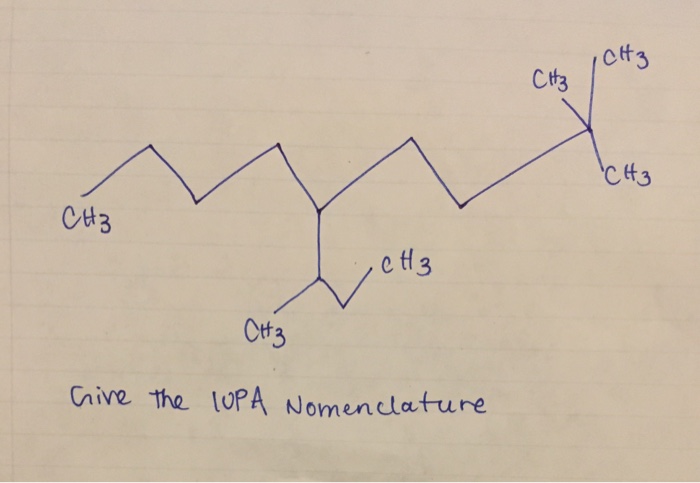 CH3
CH3
CH3
CH3
CH3
CH3
Give the IUPA Nomenclature